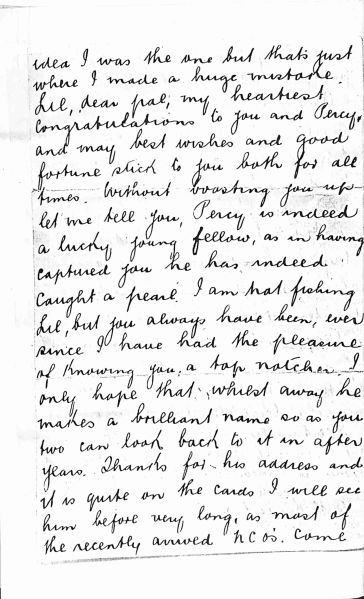 idea I was the one but that's just
where I made a huge mistake.
Lil, dear pal, my heartiest
congratulations to you and Percy,
and may best wishes and good
fortune stick to you both for all
times. Without boosting you up
let me tell you, Percy is indeed
a lucky young fellow, as in having
captured you he has indeed
caught a pearl. I am not fishing
Lil, but you always have been, ever
since I have had the pleasure
of knowing you, a top notcher. I
only hope that, whilst away he
makes a brilliant name so as you
two can look back to it in after
years. Thanks for his address and
it is quite on the cards I will see
him before very long, as most of
the recently arrived NCOs. come